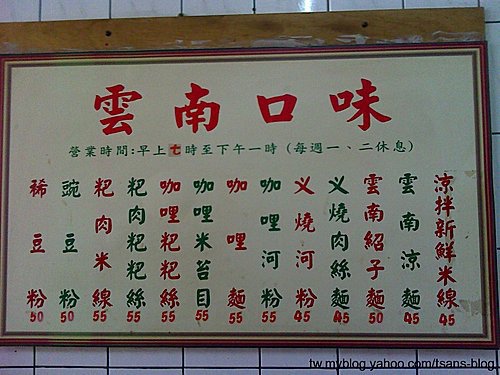 雲南口味
營業時間:早上七時至下午一時(每週一、二休息)
涼拌新鮮米線 45
雲南涼麵 45
雲南紹子麵 50
义燒肉絲麵 45
义燒河粉 45
咖哩河粉 55
咖哩麵 55
咖哩米苔目 55
咖哩粑粑絲 55
粑肉粑粑絲 55
粑肉米線 55
豌豆粉 50
稀豆粉 50
tw.myblog.yahoo.com/tsans-blog